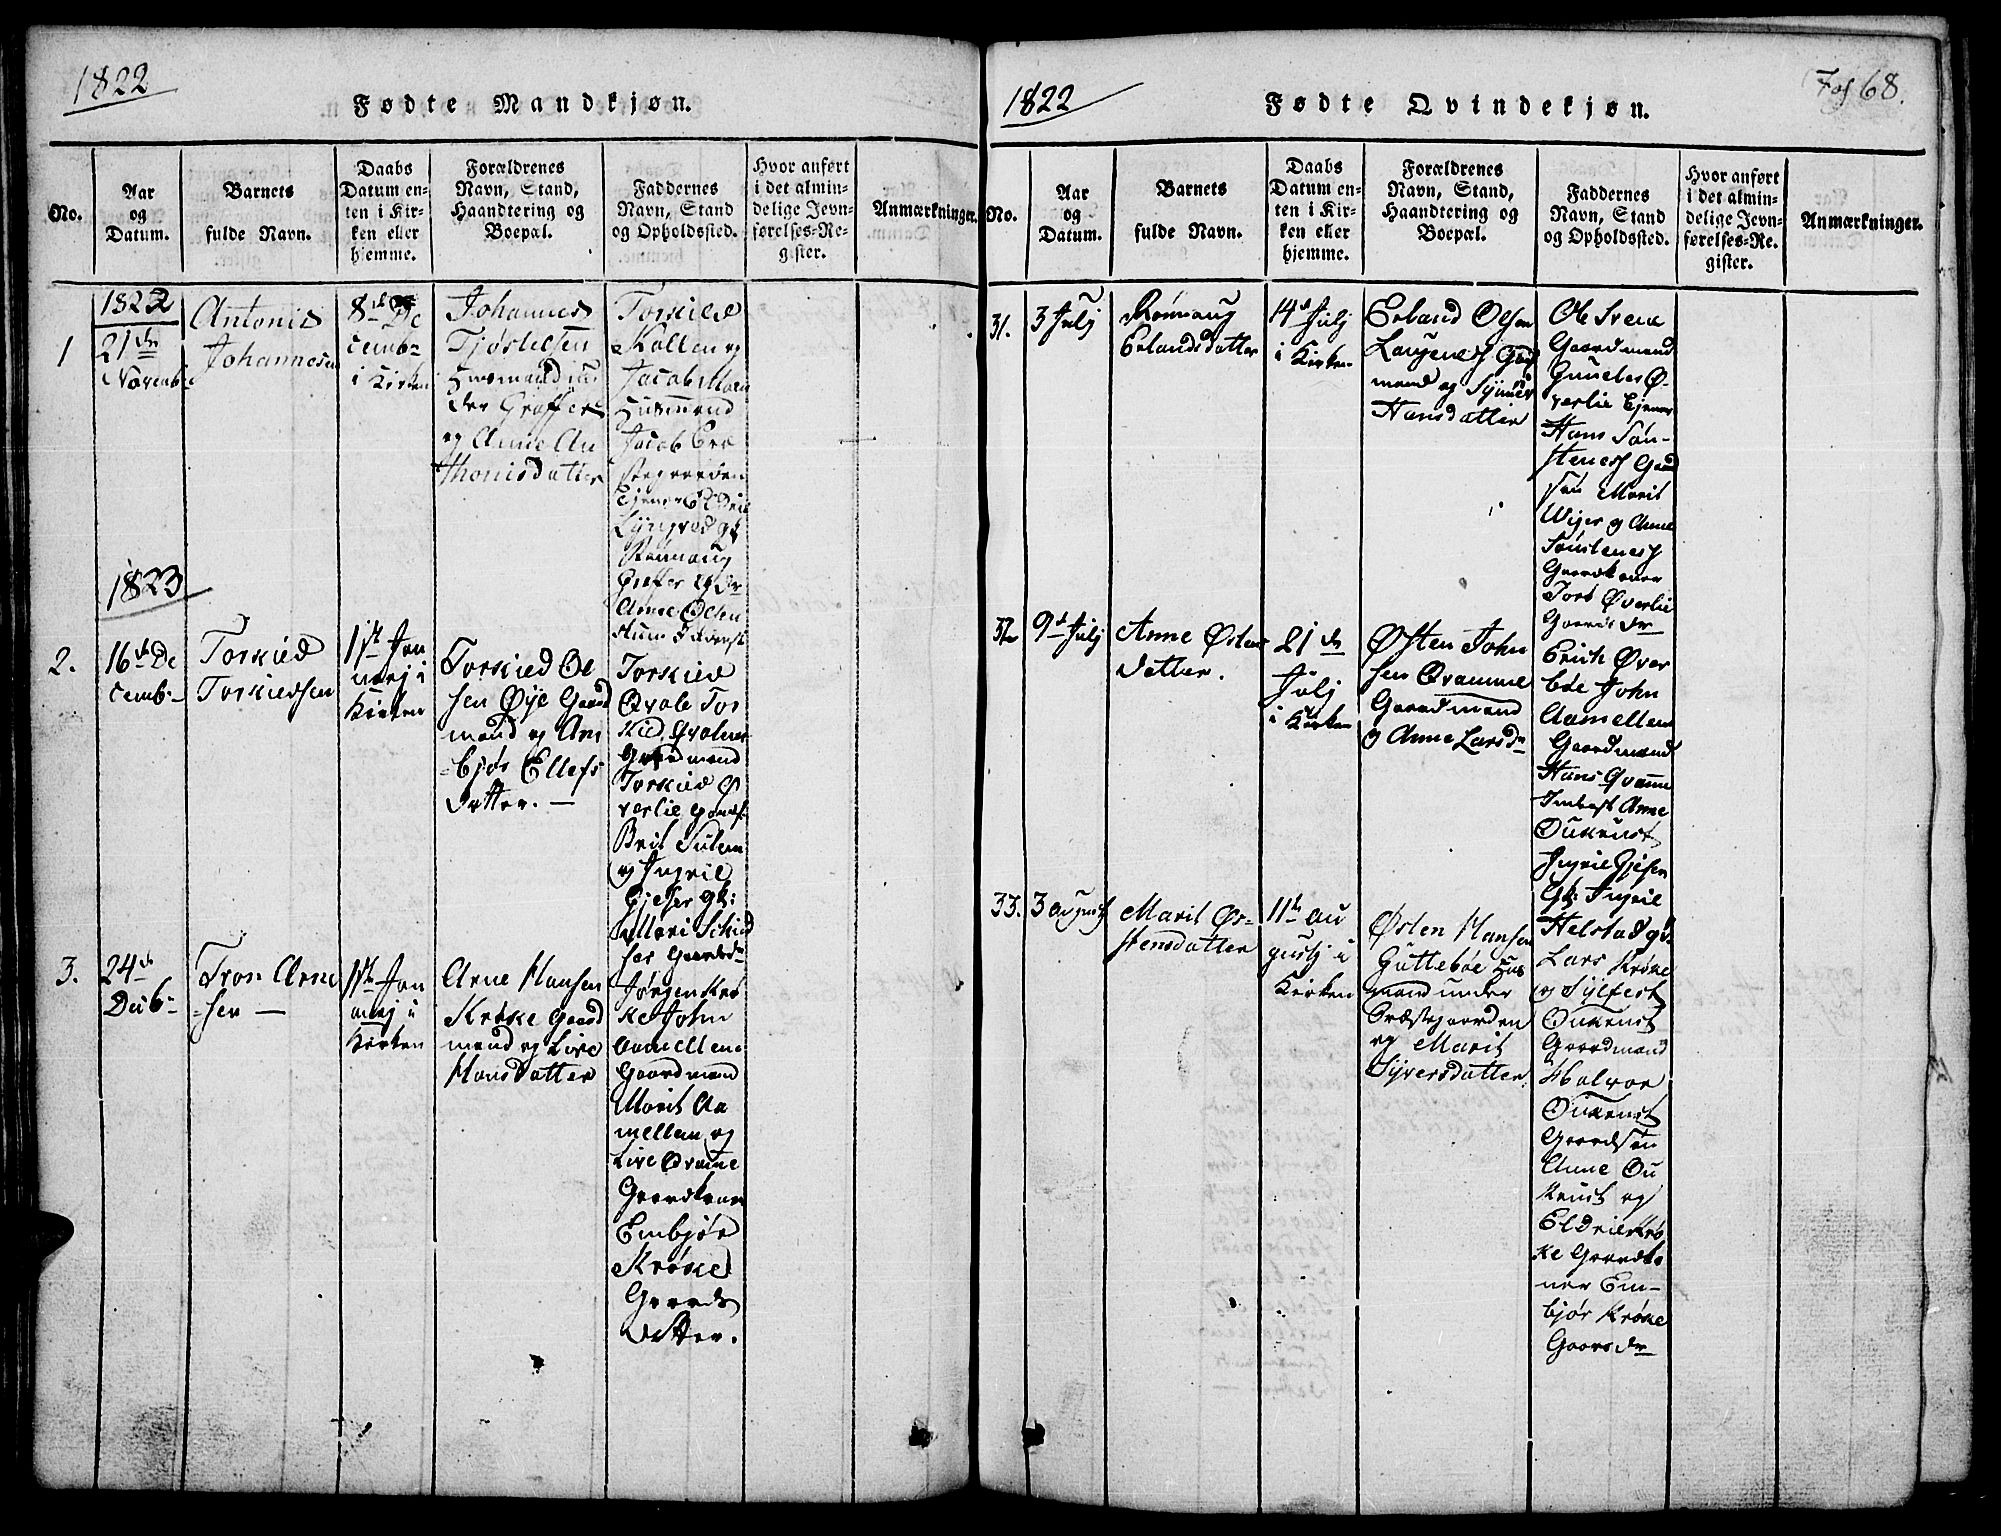 1822
Fødte Mandkjøn.
No.
Aar
og
Datum.
Barnets
fulde Navn.
Daabs
Datum en-
ten i Kir-
ken eller
hjemme.
Forældrenes
Navn, Stand,
Haandtering og
Boepæl.
Faddernes
Navn, Stand
og Opholdssted.
Hvor anført
i det almin-
delige Jevn-
førelses-Re-
gister.
Anmærkninger.
1
1822
21de
Novemb
Antonis
Johannesen
8de De
cemb
i Kirken
Johannes
Tjøstelsen
Huusmand un
der Graffer
og Anne An
thonisdatter
Torkild
Kollen og
Jacob Moen
Huusmand
Jacob Præ
stegaarden
Ejener Eldrie
Lyngved gk
Rønnaug
Graffer og dr
Anne Olsen
1823
2.
16de De
cemb
Torkild
Torkildsen
1ste Jan
uarj i
Kirken
Torkild Ol
sen Øye Gaard
mand og Am
bjør Ellefs
datter.
Torkild
Qvale Tor
kild Qvalen
Gaardmænd
Torkild Ø
verlie
Brit Sulem
og Ingrie
Gjeser gk:
Mari
Gaardsdr
3.
24de
Decb
Tron Arne
sen
1ste Jan
uarj i
Kirken
Arne Hansen
Krøke Gaard
mand og Live
Hansdatter
Jørgen Krø
ke John
Aamellem
Gaardmænd
Marit Aa
mellem og
Live Qvamme
Gaardkoner
Embjør
Krøke
Gaards
datter.
1822
Fødte Qvindekjøn.
Fol 68.
No.
Aar
og
Datum.
Barnets
fulde Navn.
Daabs
Datum en-
ten i Kir-
ken eller
hjemme.
Forældrenes
Navn, Stand,
Haandtering og
Boepæl.
Faddernes
Navn, Stand
og Opholdssted.
Hvor anført
i det almin-
delige Jevn-
førelses-Re-
gister.
Anmærkninger.
31.
3 Julj
Rønnaug
Erlandsdatter
14de Julj
i Kirken
Erland Olsen
Gaard
mand og Synnev
Hansdatter
Ole Svene
Gaardmand
Gunder Ø-
verlie Ejener
Hans Søn-
stenes Gaard
søn Marit
Wiger og Anne
Sønstenes
Gaardkoner
Tore Øverlie
Gaards dr
32
9de Julj
Anne Østens
datter.
21de
Julj
i Kirken
Østen John
sen Qvamme
Gaardmand
og Anne Larsdr
Erich Øver
bøe John
Aamellem
Gaardmænd
Hans Qvamme
Anne
Øukenst
Ingrie Gjeser
Gk: Ingrie
Helstad gk:
33.
3 august
Marit Øs-
tensdatter
11te au
gustj i
Kirken
Østen Hansen
Guttebøe Huus
mand under
Præstegaarden
og Marit
Syversdatter.
Lars Krøke
og Sylfest
Øukenst
Gaardmænd
Halvor
Øukenst
Gaardsøn
Anne Øu
kenst og
Eldrie Krø
ke Gaardko
ner Em-
bjør Krøke
Gaardsdr